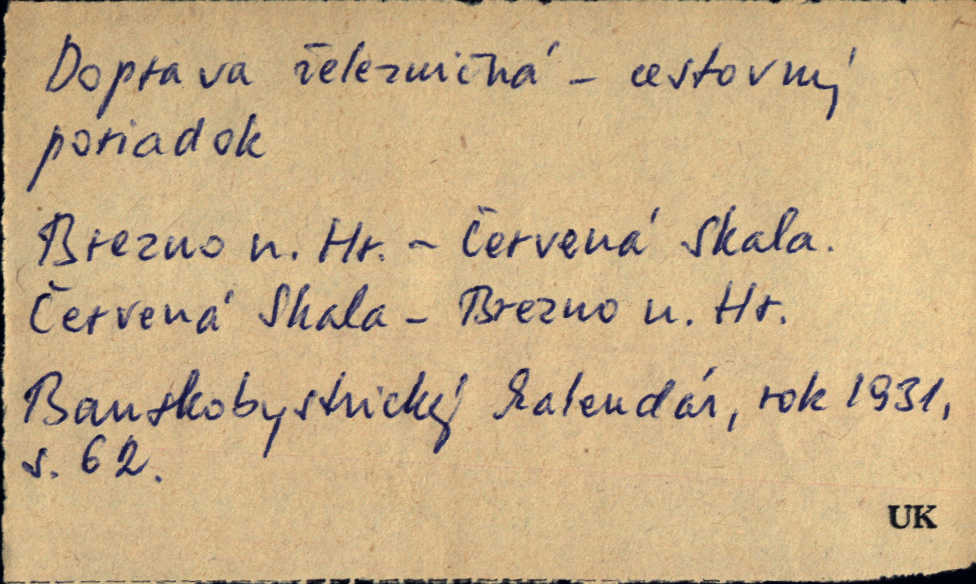 Doprava železničná – cestovný
poriadok
Brezno n. Hr. – Červená Skala.
Červená Skala – Brezno n. Hr.
Banskobystrický kalendár, rok 1931,
s. 62.
UK